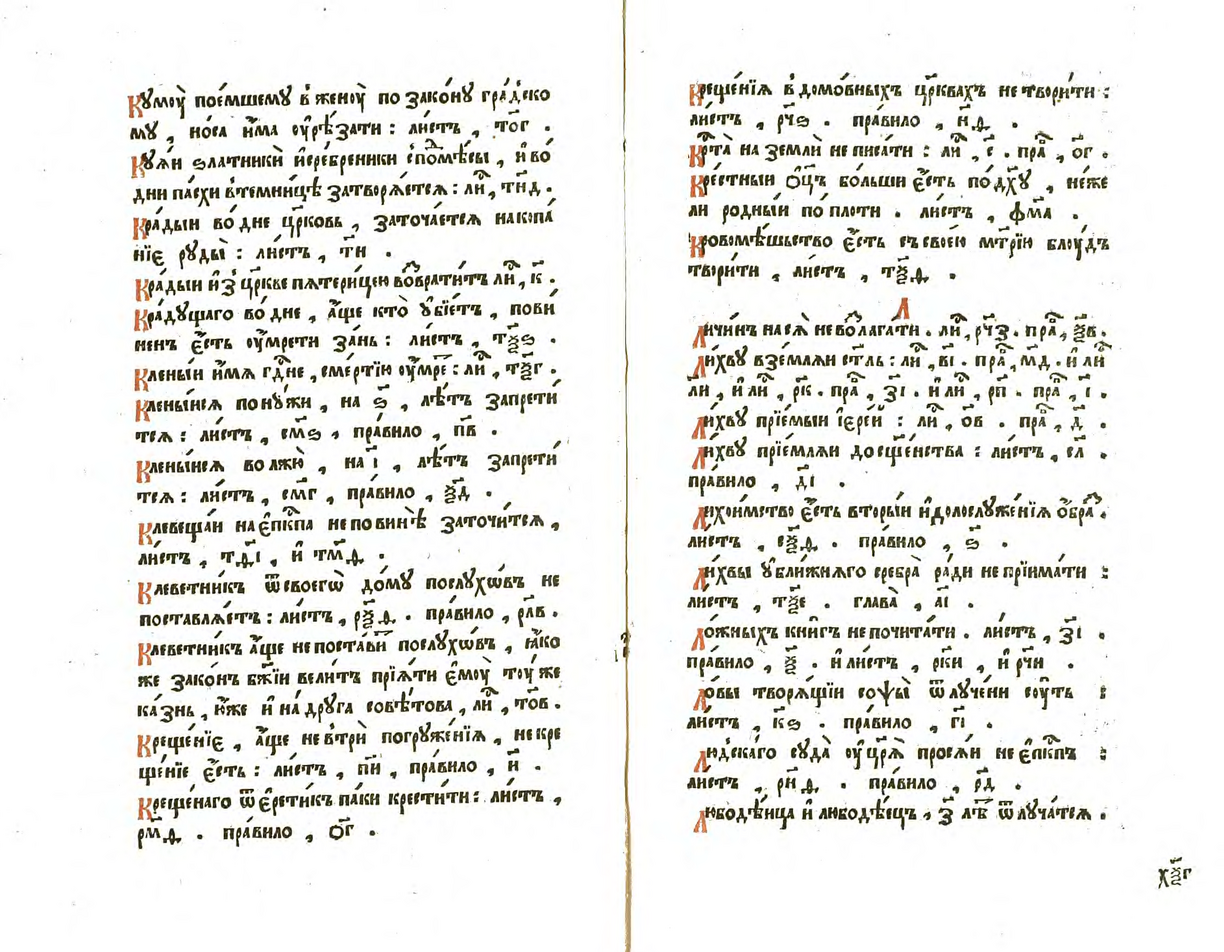 Кꙋмоу̀ пое́мшемꙋ в̾ женоу̀ по зако́нꙋ гра́дско
мꙋ , но́са и҆́ма оу҆рѣ́зати : ли́стъ , то҃г .
Кꙋѧ́и ѕла́тники и҆сре́бреники с̾помѣ́сы , и҆ во
дни па́схи в̾темни́цѣ затворѧ́ется : лиⷭ҇ , тн҃д .
Кра́дыи во́ дне цр҃ковь , заточа́ется накопа́
нїє рꙋды̀ : ли́стъ , тн҃ .
Кра́дыи и҆з̾ цр҃кве пѧтери́цею во́звратитъ лиⷭ҇ , к҃ .
Кра́дꙋщаго во́ дне , а҆́ще кто̀ ᲂу҆бїе́тъ , пови
ненъ є҆́сть оу҆мрети за́нь : ли́стъ , тѯ҃ѕ .
Кленыи и҆́мѧ гдⷭ҇не , сме́ртїю оу҆́мре : лиⷭ҇ , тѯ҃г .
Клены́исѧ по нꙋ́жи , на ѕ҃ , лѣ́тъ запрети́
тсѧ : ли́стъ , см҃ѕ , пра́вило , п҃в .
Клены́исѧ во лжю̀ , на і҃ , лѣ́тъ запрети́
тсѧ : ли́стъ , см҃г , пра́вило , ѯ҃д .
Клевеща́и на є҆пⷭ҇кпа не повинѣ̀ заточи́тсѧ ,
ли́стъ , тд҃і , и҆ тм҃д .
Клеветни́къ ѿ своегѡ̀ до́мꙋ послꙋ́хѡвъ не
поставлѧ́етъ : ли́стъ , рѯ҃д . пра́вило , рл҃в .
Клеветни́къ а҆́ще не поста́ви послꙋ́хѡвъ , ꙗ҆́ко
же зако́нъ бж҃їи вели́тъ прїѧ́ти є҆моу̀ тоу́ же
ка́знь , ю҆́же и҆ на́ дрꙋга совѣ́това , лиⷭ҇ , то҃в .
Креще́нїє , а҆́ще не в̾три́ погрꙋже́нїѧ , не кре
ще́нїе є҆́сть : ли́стъ , пи҃ , пра́вило , и҃ .
Креще́наго ѿ є҆рети́къ па́ки крести́ти : ли́стъ ,
рм҃д . пра́вило , ѻ҃г .
Креще́нїѧ в̾ домо́вныхъ цр҃квахъ не твори́ти :
ли́стъ , рч҃ѕ . пра́вило , н҃д .
Крⷭ҇та̀ на землѝ не писа́ти : лиⷭ҇ , с҃ . праⷡ҇ , ѻ҃г .
Кре́стныи ѻ҆ц҃ъ бо́льши є҆́сть по дх҃ꙋ , не́же
ли ро́дныи по пло́ти . ли́стъ , фм҃а .
Кровомѣ́шьство є҆́сть съ свое́ю мт҃рїю блоу́дъ
твори́ти , ли́стъ , тѯ҃д .
Л
Личи́нъ на сѧ̀ не возлага́ти . лиⷭ҇ , рч҃з . праⷡ҇ , ѯ҃в .
Ли́хвꙋ взе́млѧи ст҃ль : лиⷭ҇ , в҃і . праⷡ҇ , м҃д . и҆ лиⷭ҇
ли , и҆ лиⷭ҇ , рк҃ . праⷡ҇ , з҃і . и҆ лиⷭ҇ , рп҃ . праⷡ҇ , і҃ .
Ли́хвꙋ прїе́мыи і҆ере́й : лиⷭ҇ , ѻ҃в . праⷡ҇ , д҃ .
Ли́хвꙋ прїе́млѧи до сщ҃е́нства : ли́стъ , сл҃ .
пра́вило , д҃і .
Лихои́мство є҆́сть вторы́и и҆долослꙋже́нїѧ ѻ҆́браⷥ҇ .
ли́стъ , сѯ҃д . пра́вило , ѕ҃ .
Ли́хвы ᲂу҆ бли́жнѧго сребра̀ ра́ди не прїима́ти :
ли́стъ , тѯ҃е . глава̀ , а҃і .
Ло́жныхъ кни́гъ не почита́ти . ли́стъ , з҃і .
пра́вило , ѯ҃ . и҆ ли́стъ , рк҃и , и҆ рч҃и .
Ло́вы творѧ́щїи со ѱы̀ ѿлꙋче́ни соу́ть :
ли́стъ , к҃ѕ . пра́вило , г҃і .
Людска́го сꙋда̀ оу҆ цр҃ѧ̀ просѧ́и не є҆пⷭ҇кпъ :
ли́стъ , рн҃д . пра́вило , рд҃ .
Любодѣ́ица и҆ любодѣ́ецъ , з҃ лѣⷮ ѿлꙋча́тсѧ .
хѯ҃г